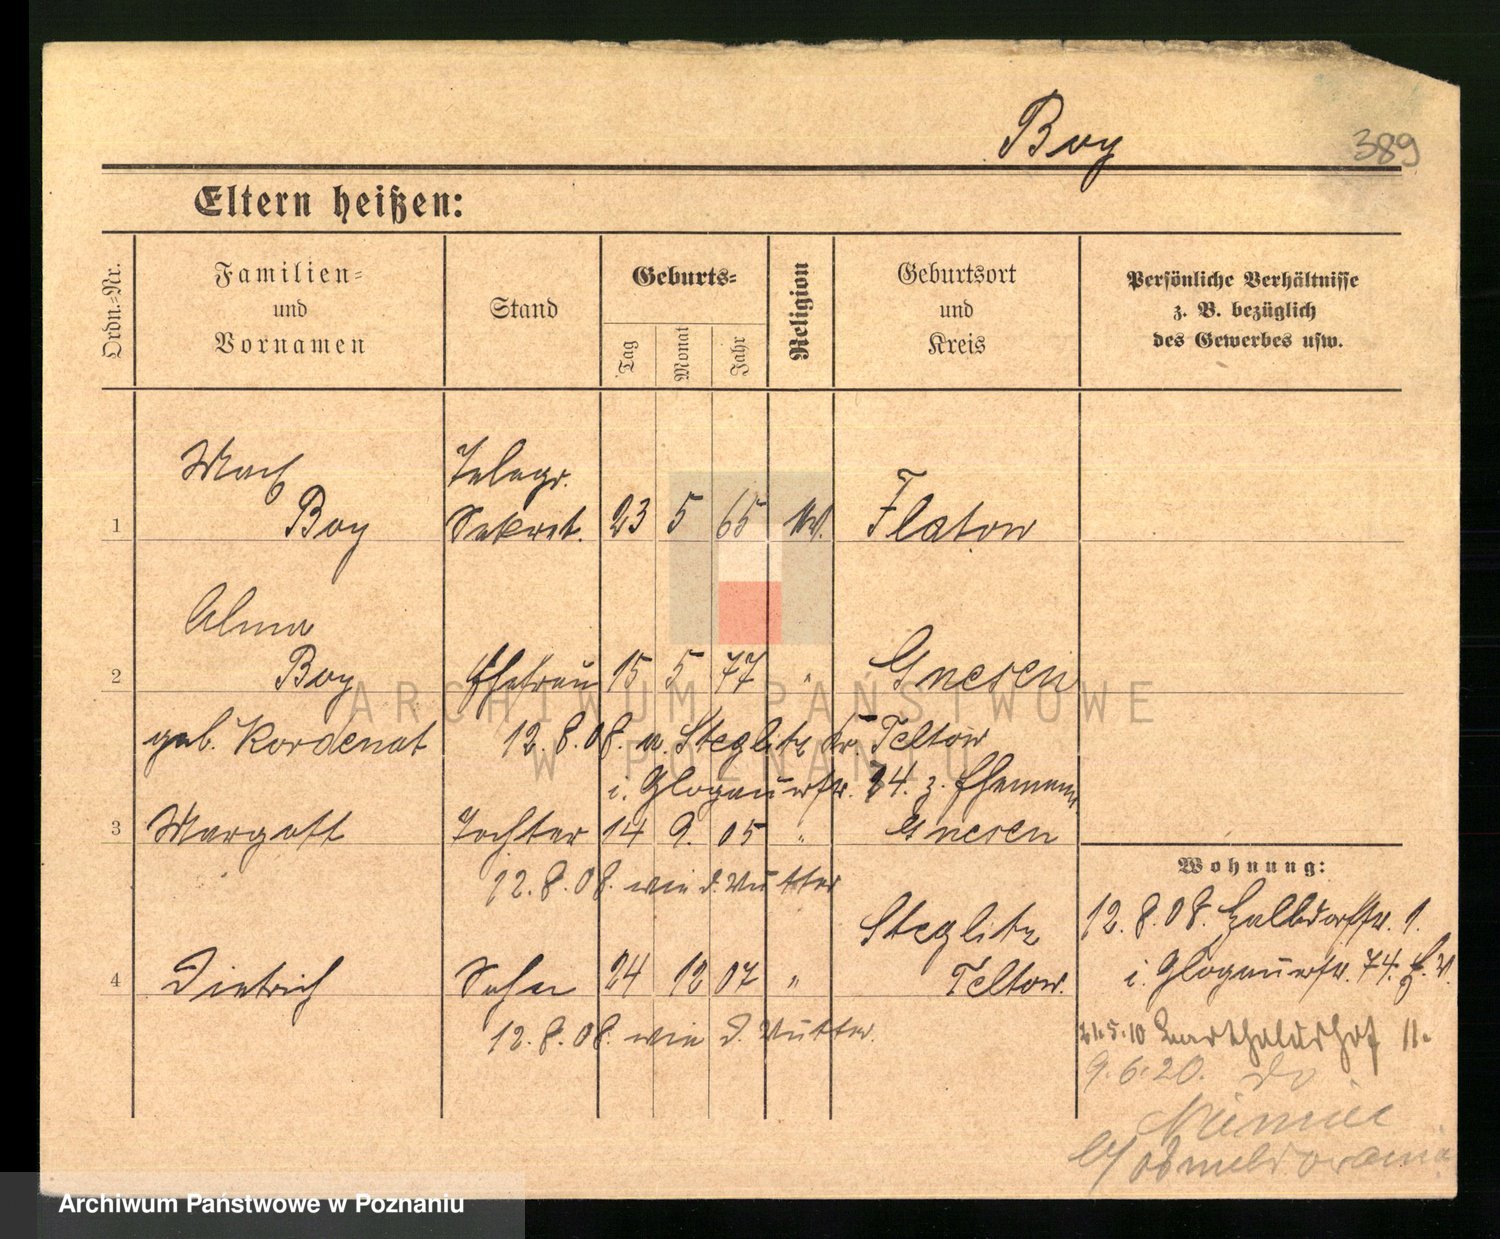 Boy
389
Eltern heißen:
Ordn.-Nr.
Familien-
und
Vornamen
Stand
Geburts-
Tag
Monat
Jahr
Religion
Geburtsort
und
Kreis
Persönliche Verhältnisse
z. B. bezüglich
des Gewerbes usw.
Max Telegr.
1 Boy Sekret. 23 5 65 ev. Flatow
Alma
2 Boy Ehefrau 15 5 77 " Gnesen
geb. Kordenat 12.8.08. n. Steglitz Kr. Teltow
i. Glogauerstr. 74. z. Ehemann
3 Margott Tochter 14 9. 05 " Gnesen
12.8.08. wie d. Mutter
Steglitz
4 Dietrich Sohn 24 12 07 " Teltow.
12.8.08. wie d. Mutter.
Wohnung:
12.8.08. 1.
i. Glogauerstr. 74.
21.5.10 Bartholdshof 11.
9.6.20. do
Niemiec
ARCHIWUM PAŃSTWOWE
W POZNANIU
Archiwum Państwowe w Poznaniu